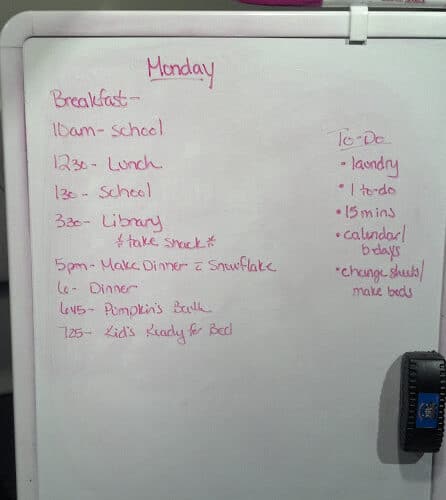 Monday
Breakfast-
10am- School
1230- Lunch
130- School
330- Library
*take snack*
5pm- Make Dinner c̄ Snowflake
6- Dinner
645- Pumpkin's Bath
725- Kid's Ready for Bed
To-Do
• laundry
• 1 to-do
• 15 mins
• calendar/
bdays
• change sheets/
make beds